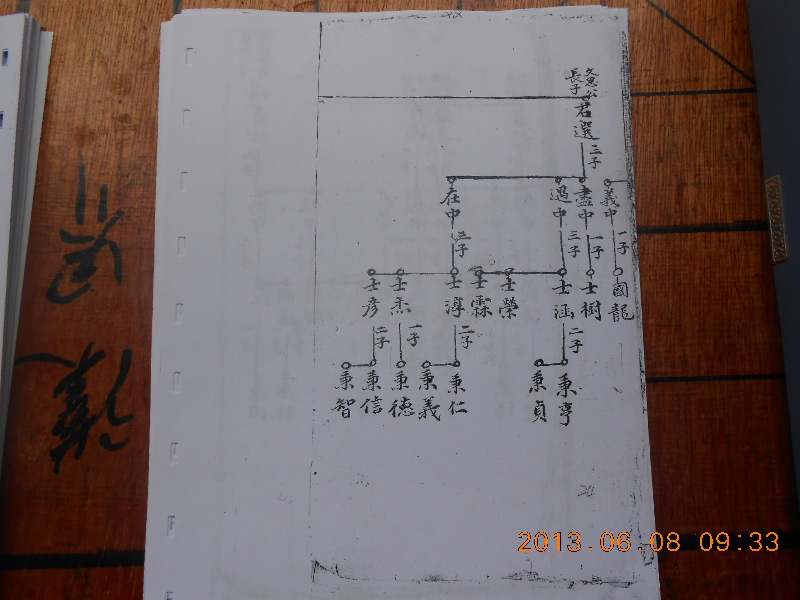 文思公
長子
君選
三子
義中
盡中
過中
在中
一子
一子
三子
三子
國龍
士樹
士涵
士榮
士霖
士淳
士杰
士彥
二子
二子
一子
二子
秉亨
秉貞
秉仁
秉義
秉德
秉信
秉智
2013.06.08 09:33